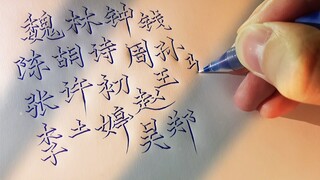 魏林钟钱
陈胡诗周孙马
张许初赵王
李土婷吴郑